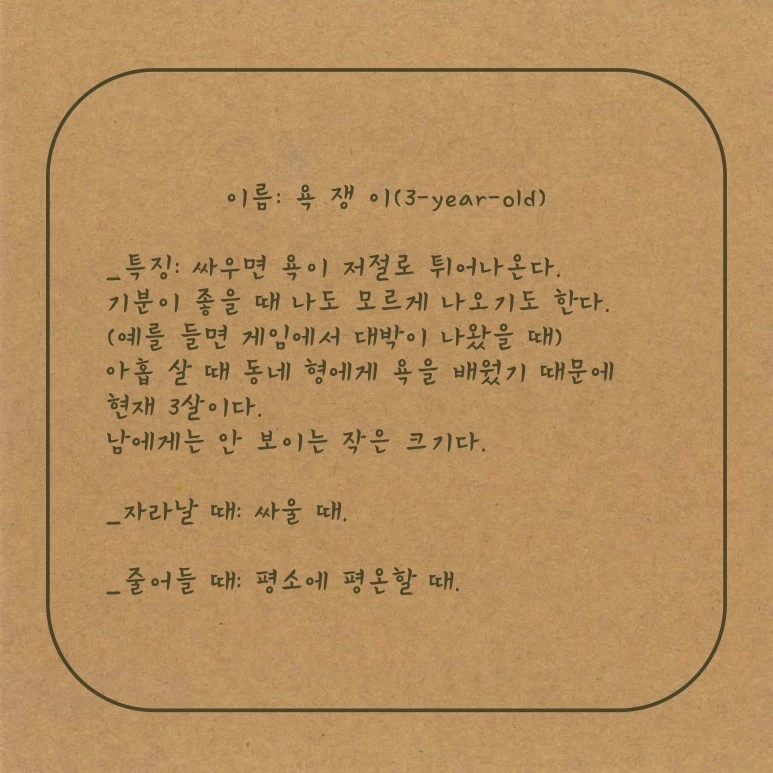 이름: 욕 쟁 이(3-year-old)
_특징: 싸우면 욕이 저절로 튀어나온다.
기분이 좋을 때 나도 모르게 나오기도 한다.
(예를 들면 게임에서 대박이 나왔을 때)
아홉 살 때 동네 형에게 욕을 배웠기 때문에
현재 3살이다.
남에게는 안 보이는 작은 크기다.
_자라날 때: 싸울 때.
_줄어들 때: 평소에 평온할 때.